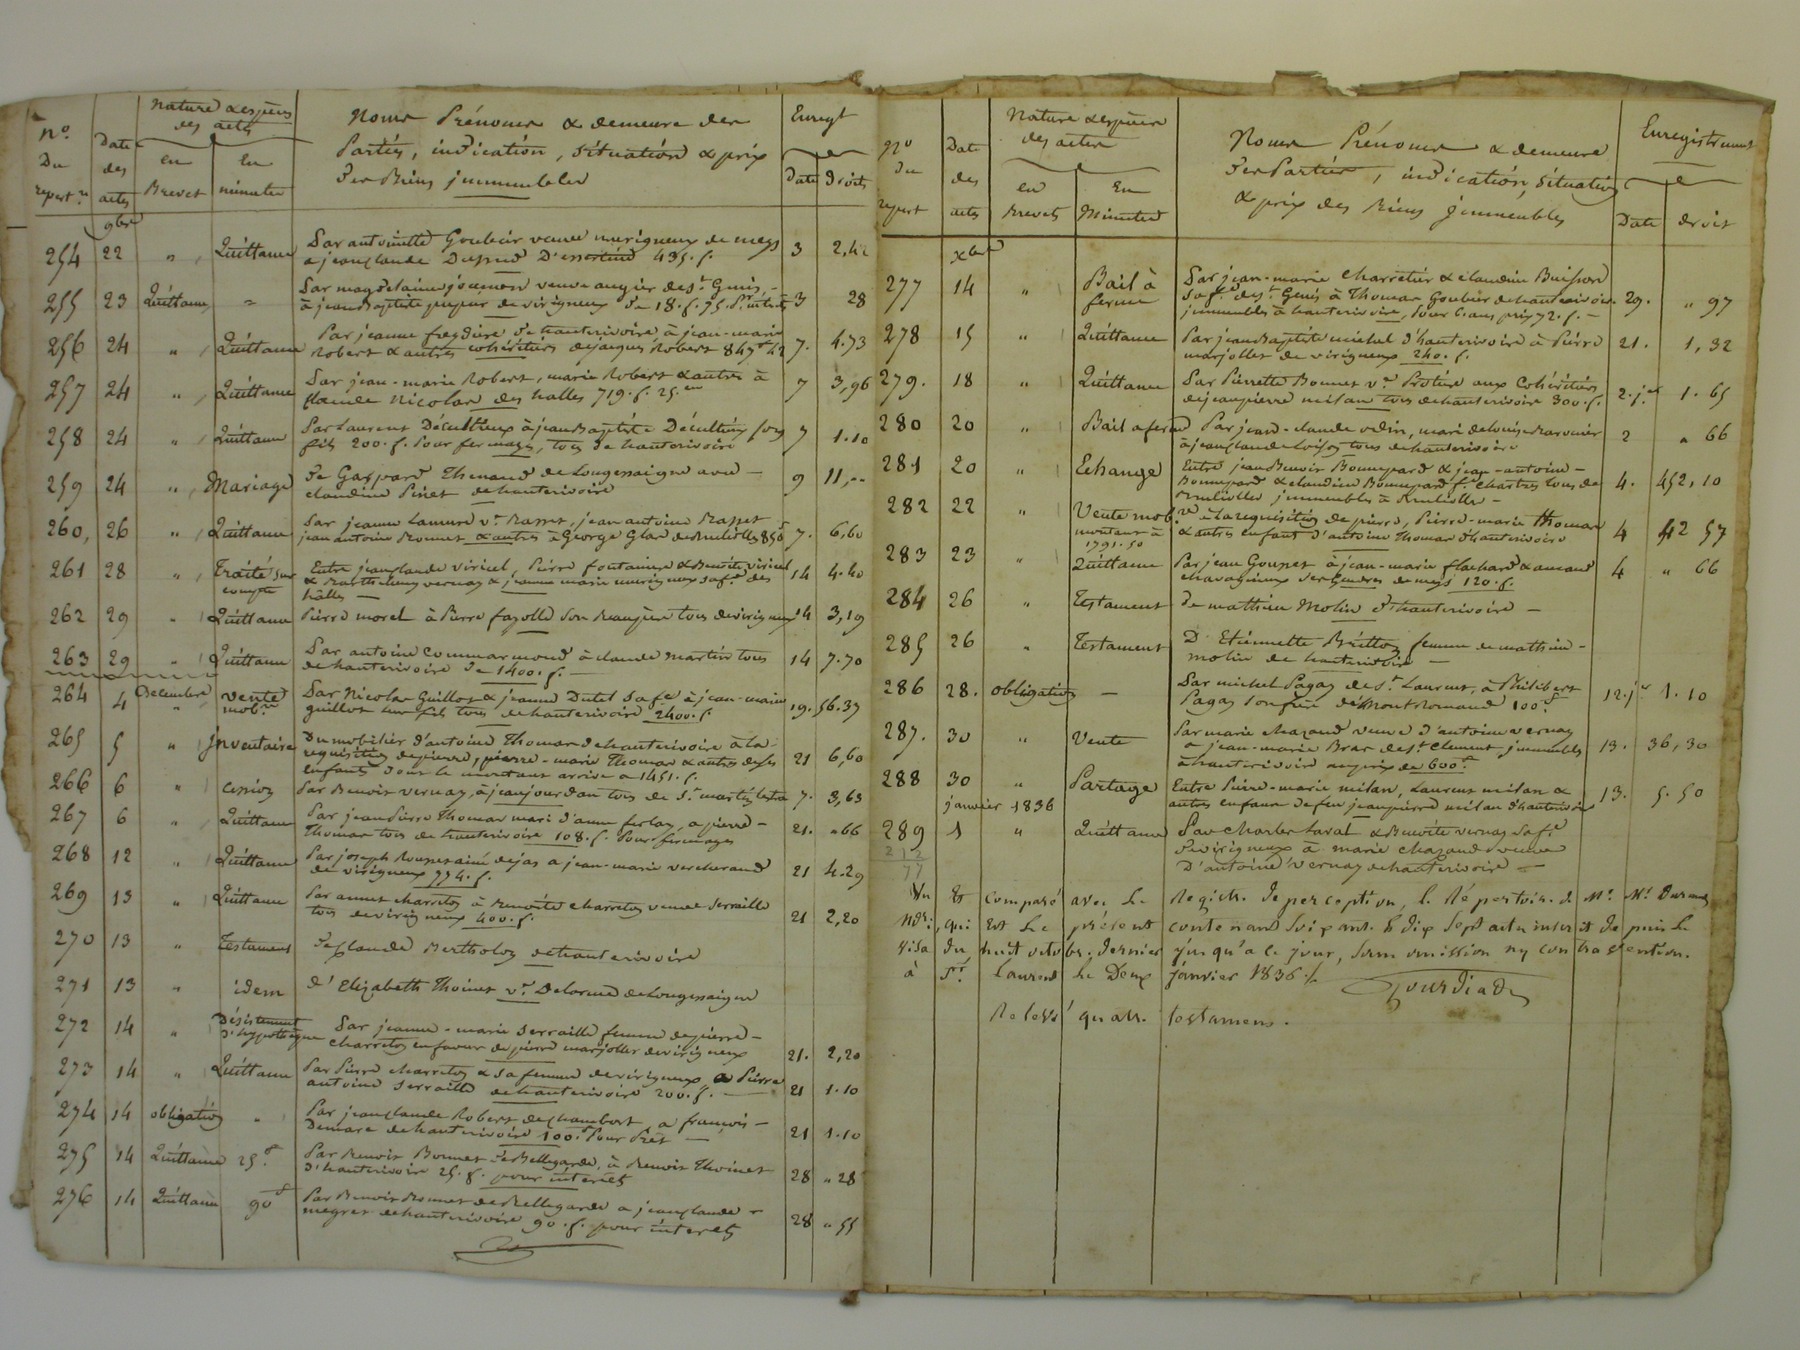 No. Du repert.re
Date des actes
Nature & espèces des actes
en Brevet
En minutes
Noms Prénoms & demeure des
Parties, indication, situation & prix
Des Biens immeubles
Enregt
Date Droits
9bre
254 22 " Quittance Par antoinette Goubier veuve murigneux de meys
a jean claude Dupred D'essertine 435. f. 3 2,42
255 23 Quittance " Par magdelaine journon veuve augier de St. Genis,
à jean Baptiste de virigneux De 18. f. 75. Pr. intérêts 3 28
256 24 " Quittance Par jeanne fregdire de hauterivoire à jean-marie
Robert & autres cohéritiers de jacques Robert 847f 42 7. 4.73
257 24 " Quittance Par jean-marie Robert, marie Robert & autres à
claude Nicolas des halles 719. f. 25.cm 7 3,96
258 24 " Quittance Par Laurent Décultieux à jean Baptiste Décultieux son
fils 200. f. Pour fermages, tous de hauterivoire 7 1.10
259 24 " Mariage De Gaspard Thenaud de Longessaigne avec
claudine Pinet de hauterivoire 9 11,"
260, 26 " Quittance Par jeanne Lamure ve. Rasset, jean antoine Rasset
jean antoine Monnet & autres à George Glas de Brullioles 850 7. 6,60
261 28 " Traité sur compte Entre jean claude viricel, Pierre fontanière & Benoite viricel
& Barthelemy vernay & jeanne marie murigneux sa fe. des
halles 14 4.40
262 29 " Quittance Pierre morel à Pierre fayolle son Beaupère tous de virigneux 14 3,19
263 29 " Quittance Par antoine Commarmond à claude martin tous
de hauterivoire De 1400. f. 14 7.70
Decembre
264 4 " vente mob.re Par Nicolas Guillot & jeanne Dutel sa fe à jean-marie
guillot leur fils tous de hauterivoire 2400. f. 19. 56.37
265 5 " Inventaire Du mobilier d'antoine Thomas de hauterivoire à la
requisition de pierre, pierre-marie Thomas & autres ses
enfants dont le montant arrive a 1451. f. 21 6,60
266 6 " cession Par Benoit vernay, à jean jourdan tous de St. martin lestra 7. 3,63
267 6 " Quittance Par jean Pierre Thomas mari d'anne ferlay, a pierre
Thomas tous de hauterivoire 108. f. Pour fermages 21. " 66
268 12 " Quittance Par joseph Rousset ainé de jas a jean-marie vercherand
de virigneux 774. f. 21 4.29
269 13 " Quittance Par annet charreton à Benoite charreton veuve serraille
tous de virigneux 400. f. 21 2,20
270 13 " Testament De claude Bertholon de hauterivoire
271 13 " idem d'Elizabeth Thoinet ve. Delorme de Longessaigne
272 14 " Désistement d'hypothèque Par jeanne-marie serraille femme de pierre
charreton en faveur de pierre marjollet de virigneux 21. 2,20
273 14 " Quittance Par Pierre charreton & sa femme de virigneux, a Pierre
antoine serraille de hauterivoire 200. f. 21 1.10
274 14 obligation " Par jean claude Robert de chambost, a francois
Demare de hauterivoire 100.f Pour Prêt 21 1.10
275 14 Quittance 25.f Par Benoit Bonnet de Bellegarde, à Benoit Thoinet
d'hauterivoire 25. f. pour intérêts 28 " 28
276 14 Quittance 90f Par Benoit Bonnet de Bellegarde a jean claude
megret de hauterivoire 90. f. pour intérêts 28 " 55
No Du repert
Date des actes
Nature & espèces des actes
en Brevets
En Minutes
Noms Prénoms & demeure
Des Parties, indication, situation
& prix des Biens jmmeubles
Enregistrement
Date droit
Xbre
277 14 " Bail à ferme Par jean-marie charretier & claudine Buisson
sa fe. de St. Genis à Thomas Goubier de hauterivoire
jmmeubles à hauterivoire, Pour 6. ans prix 72. f. 29. " 97
278 15 " Quittance Par jean Baptiste michel d'hauterivoire à Pierre
marjollet de virigneux 240. f. 21. 1,32
279. 18 " Quittance Par Pierrette Bonnet ve. Protière aux Cohéritiers
de jean pierre milan tous de hauterivoire 300. f. 2. jer 1. 65
280 20 " Bail a ferme Par jean-claude odin, mari de louise
à jean claude tous de hauterivoire 2 " 66
281 20 " Echange Entre jean Benoit Bonnepard & jean-antoine
Bonnepard & claudine Bonnepard fe. Chartres tous de
Brullioles jmmeubles à Brullioles 4. 452,10
282 22 " Vente mob.re à la requisition de pierre, Pierre-marie Thomas
montant à 1791.50 & autres enfant d'antoine Thomas d'hauterivoire 4 42 57
283 23 " Quittance Par jean Goupet à jean-marie flachard & amand
chavagneux ses gendres de meys 120. f. 4 " 66
284 26 " Testament de mathieu Molin d'hauterivoire
285 26 " Testament D'Etiennette Britton femme de mathieu
molin de hauterivoire
286 28. obligation Par michel Pagay de St. Laurent, à Philibert
Pagay son frère de Montromand 100.f 12. jer 1. 10
287. 30 " Vente Par marie chazaud veuve d'antoine vernay
a jean-marie Bras de St. Clement jmmeubles
à hauterivoire au prix de 600.f 13. 36,30
288 30 " Partage Entre Pierre-marie milan, Laurent milan &
autres enfans de feu jean pierre milan d'hauterivoire 13. 5. 50
janvier 1836
289 1 " Quittance Par Charles Laval & Benoite vernay sa fe.
de virigneux à marie chazaud veuve
D'antoine vernay de hauterivoire
212
77
Vu & comparé avec le Registre de perception, le Répertoire de Me. Me. Durand
Nore:, qui Est le présent contenant soixante & dix sept actes inscrit depuis le
visa du huit octobre dernier jusqu'a ce jour, sans omission ny contravention.
à St. Laurent le Deux janvier 1836./.
Relevé quatre testamens.